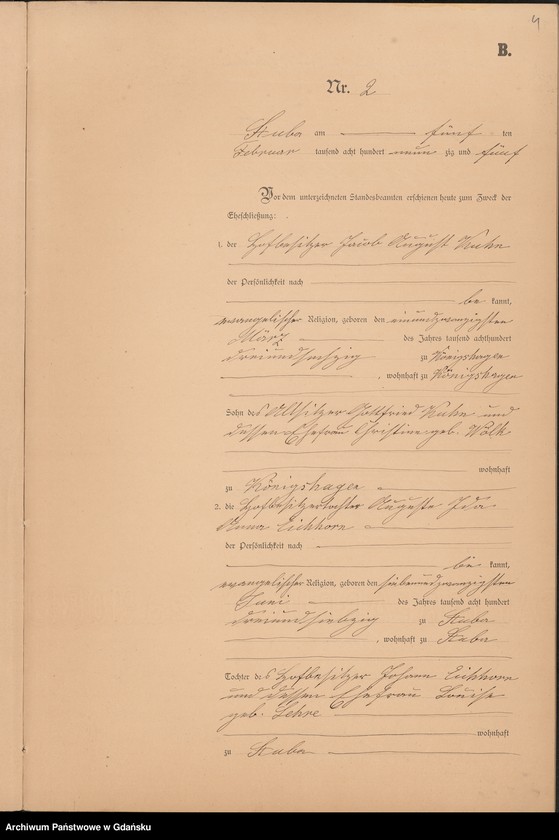 4
B.
Nr. 2
Stuba am fünf ten
Februar tausend acht hundert neun zig und fünf
Vor dem unterzeichneten Standesbeamten erschienen heute zum Zweck der
Eheschließung:
1. der Hofbesitzer Jacob August Kuhn
der Persönlichkeit nach
be kannt,
evangelischer Religion, geboren den einundzwanzigsten
März des Jahres tausend achthundert
dreiundsechzig zu Königshagen
, wohnhaft zu Königshagen
Sohn des Altsitzer Gottfried Kuhn und
dessen Ehefrau Christine geb. Wölk
wohnhaft
zu Königshagen
2. die Hofbesitzertochter Auguste Ida
Anna Eichhorn
der Persönlichkeit nach
be kannt,
evangelischer Religion, geboren den siebenundzwanzigsten
Juni des Jahres tausend acht hundert
dreiundsiebzig zu Stuba
, wohnhaft zu Stuba
Tochter des Hofbesitzer Johann Eichhorn
und dessen Ehefrau Louise
geb. Lehre
wohnhaft
zu Stuba
Archiwum Państwowe w Gdańsku